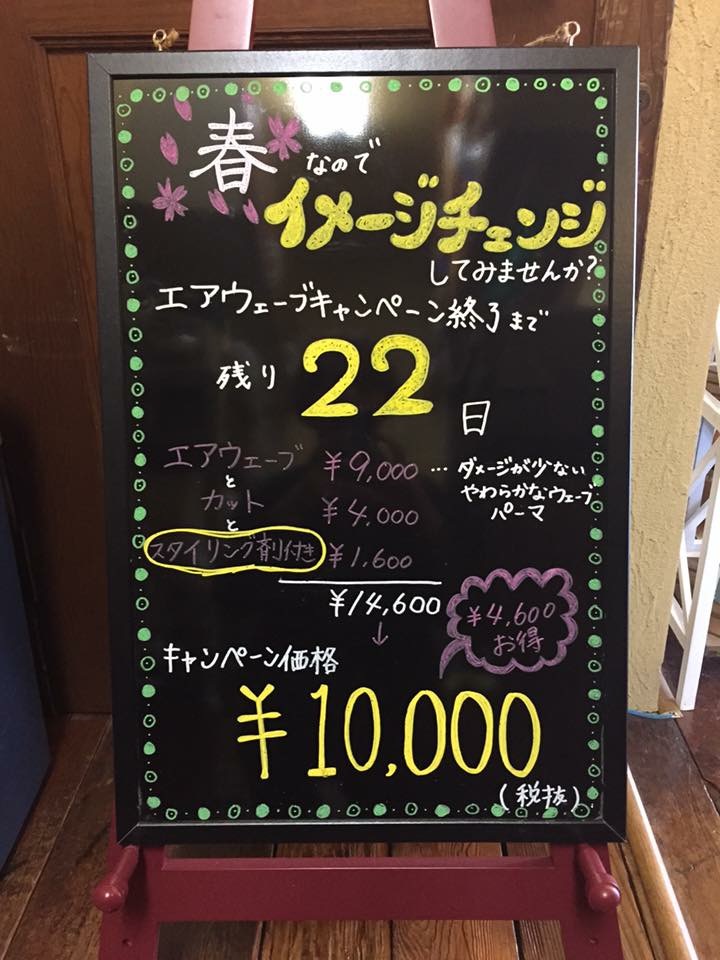 春なので
イメージチェンジ
してみませんか?
エアウェーブキャンペーン終了まで
残り 22日
エアウェーブ ¥9,000 … ダメージが少ない
やわらかなウェーブ
パーマ
と
カット ¥4,000
と
スタイリング剤付き ¥1,600
¥14,600
↓
¥4,600
お得
キャンペーン価格
¥10,000
(税抜)